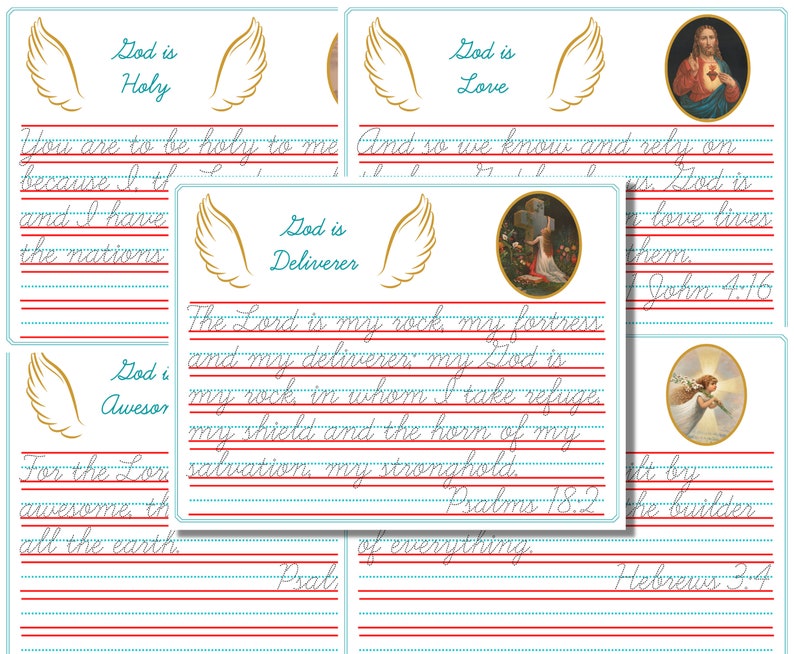 God is
Holy
You are to be holy to me
because I, th
and I have
the nations
God is
Love
And so we know and rely on
us. God is
n love lives
them.
1 John 4:16
God is
Deliverer
The Lord is my rock, my fortress
and my deliverer; my God is
my rock, in whom I take refuge,
my shield and the horn of my
salvation, my stronghold.
Psalms 18:2
God is
Awesom
For the Lord
awesome, th
all the earth.
Psal
ilt by
the builder
of everything.
Hebrews 3:4